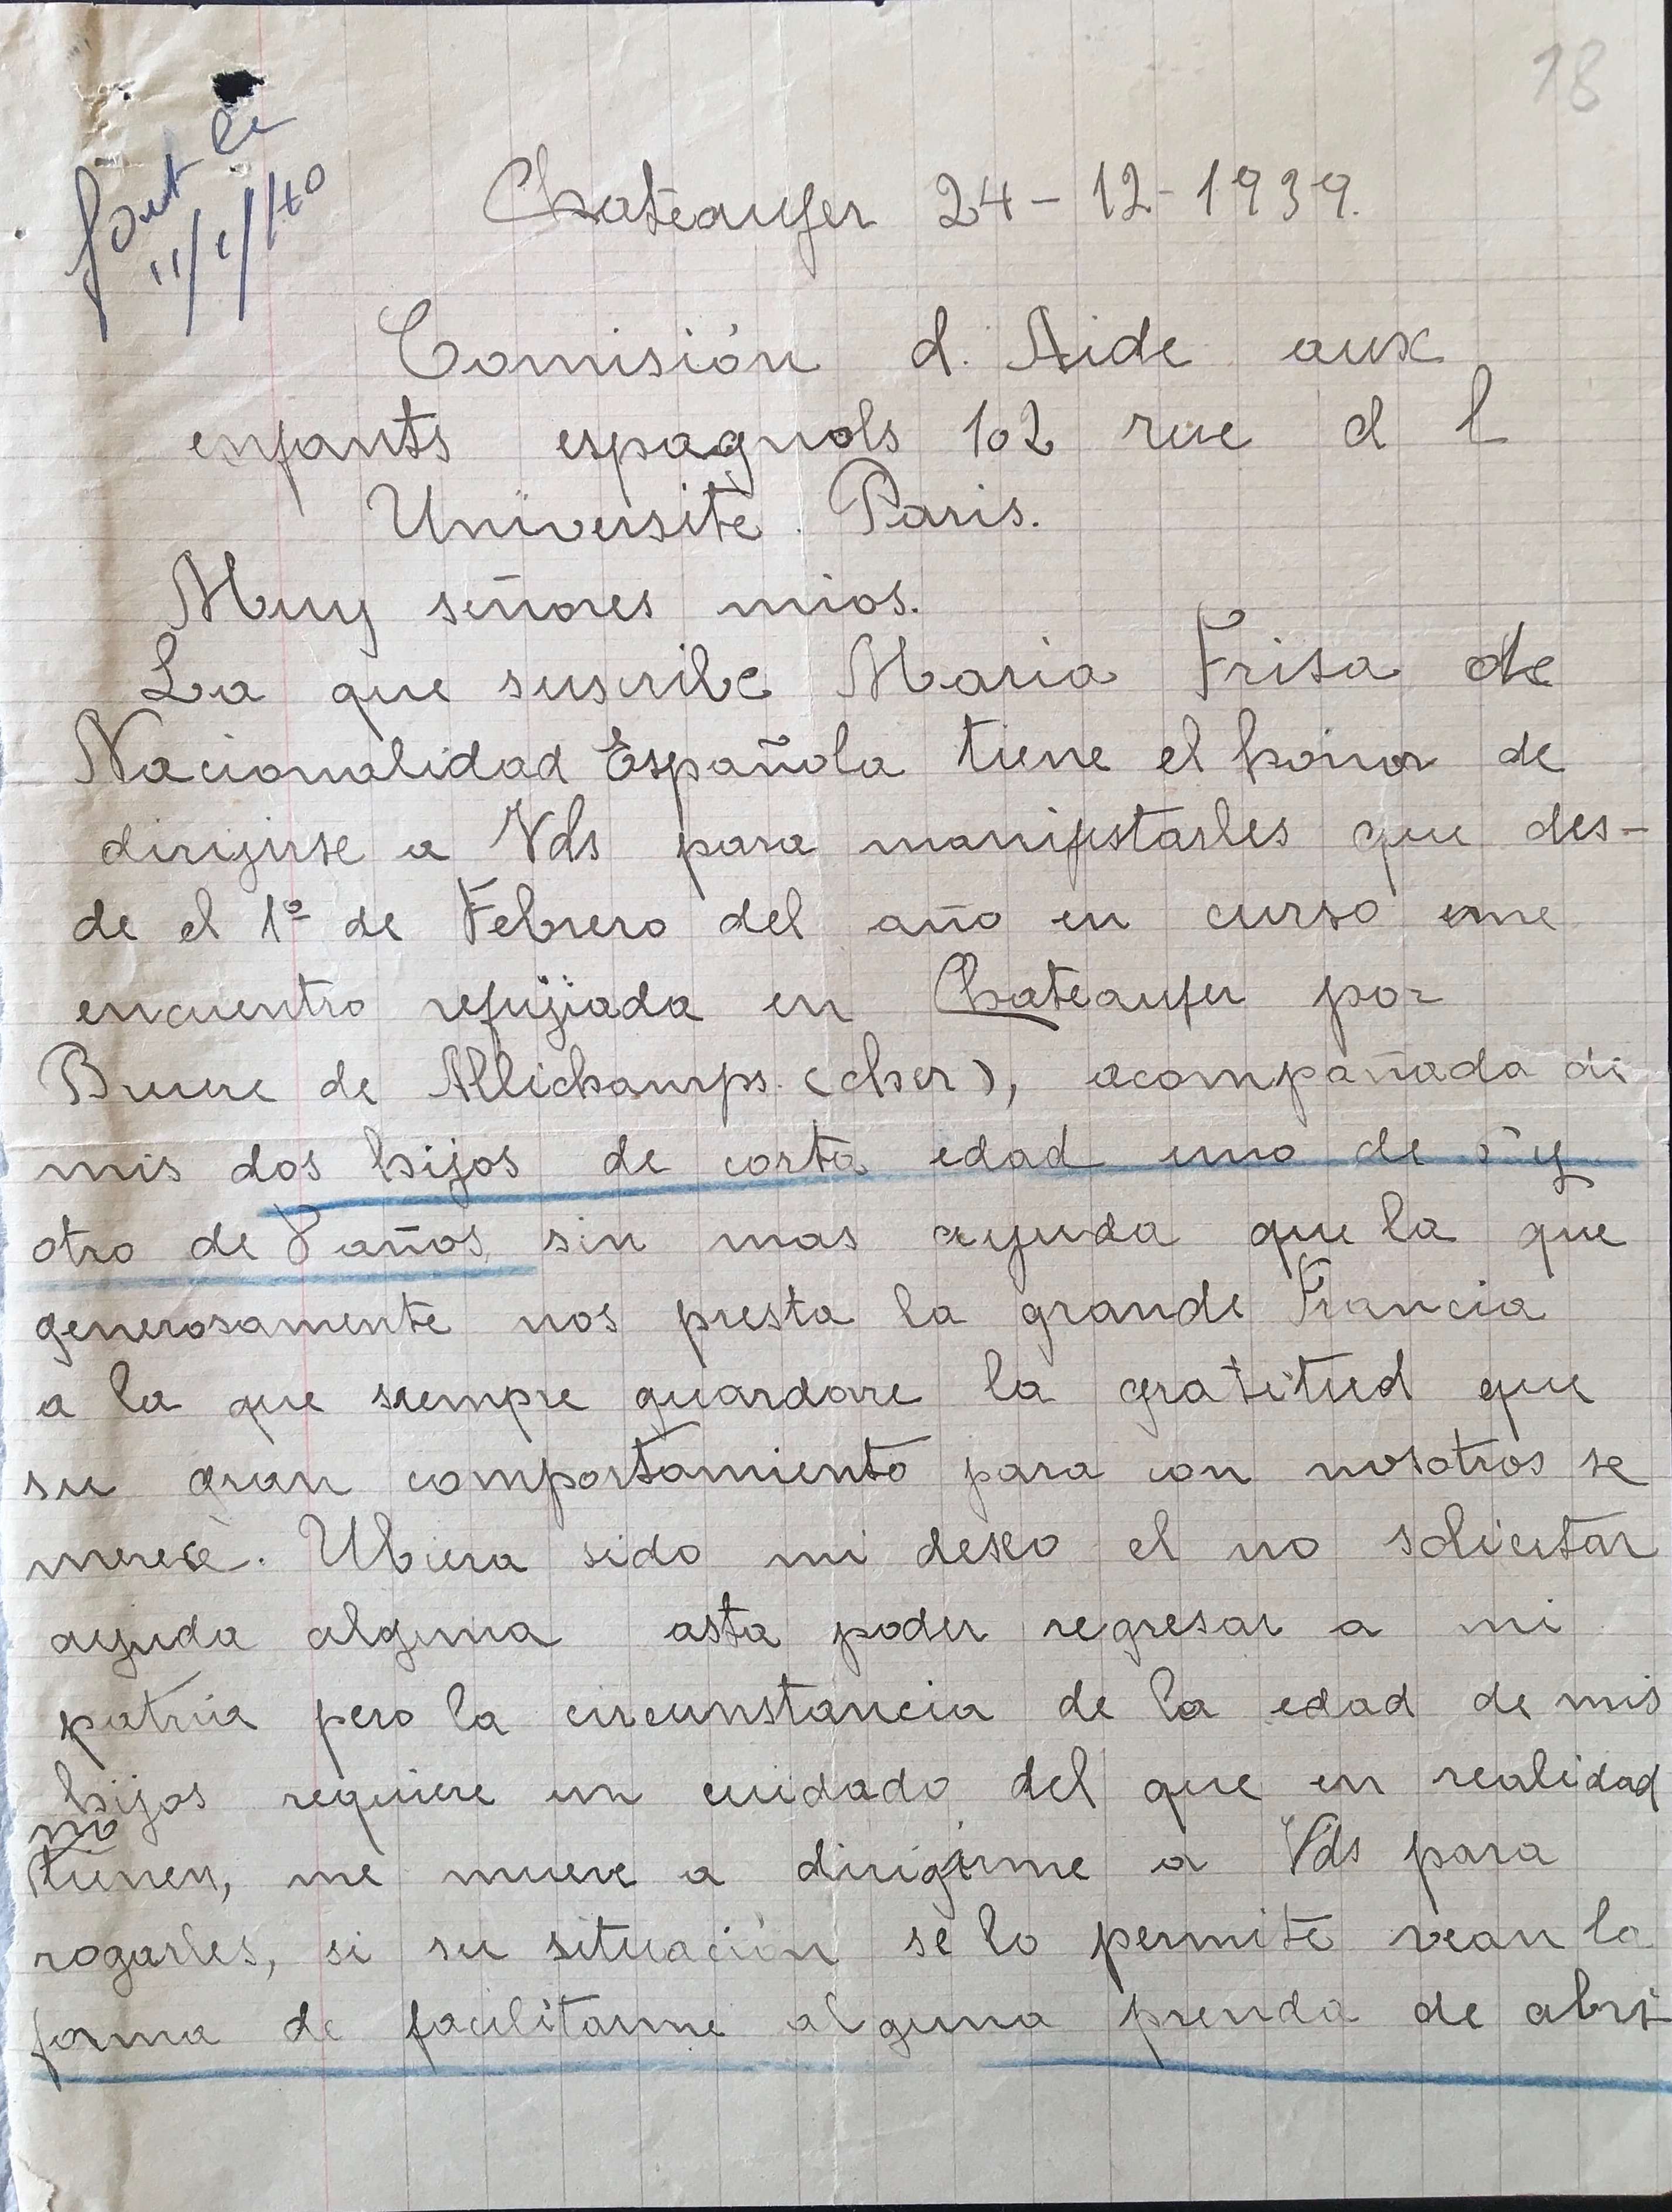 18
11/1/40
Chateaufer 24-12-1939.
Comisión d. Aide aux
enfants espagnols 102 rue d l
Université. Paris.
Muy señores mios.
La que suscribe Maria Frisa de
Nacionalidad Española tiene el honor de
dirijirse a Vds para manifestarles que des-
de el 1º de Febrero del año en curso me
encuentro refujiada en Chateaufer por
Bruere de Allichamps (cher), acompañada de
mis dos hijos de corta edad uno de y
otro de 8 años sin mas ayuda que la que
generosamente nos presta la grande Francia
a la que siempre guardare la gratitud que
su gran comportamiento para con nosotros se
merece. Ubiera sido mi deseo el no solicitar
ayuda alguna asta poder regresar a mi
patria pero la circunstancia de la edad de mis
hijos requiere un cuidado del que en realidad
no
tienen, me mueve a dirigirme a Vds para
rogarles, si su situación se lo permite vean la
forma de facilitarme alguna prenda de abri